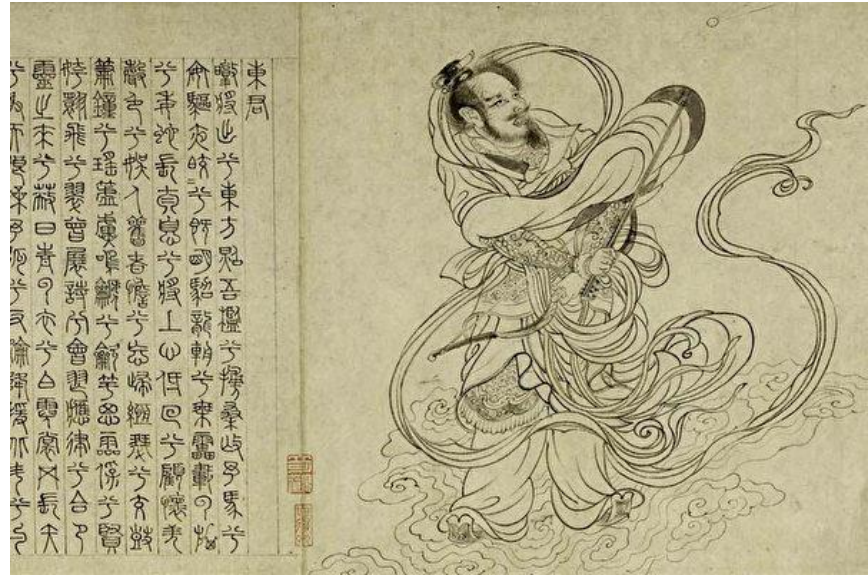 東君
暾將出兮東方照吾檻兮榑桑撫予馬兮
安驅夜皎皎兮既明駕龍輈兮乘靁載雲旗
兮委蛇長太息兮將上心低回兮顧懷羌
聲色兮娛人觀者憺兮忘歸緪瑟兮交鼓
簫鐘兮瑤簴鳴篪兮龡竽思靈保兮賢
姱翾飛兮翠曾展詩兮會舞應律兮合節
靈之來兮蔽日青雲衣兮白霓裳舉長矢
兮射天狼操予弧兮反淪降援北斗兮酌